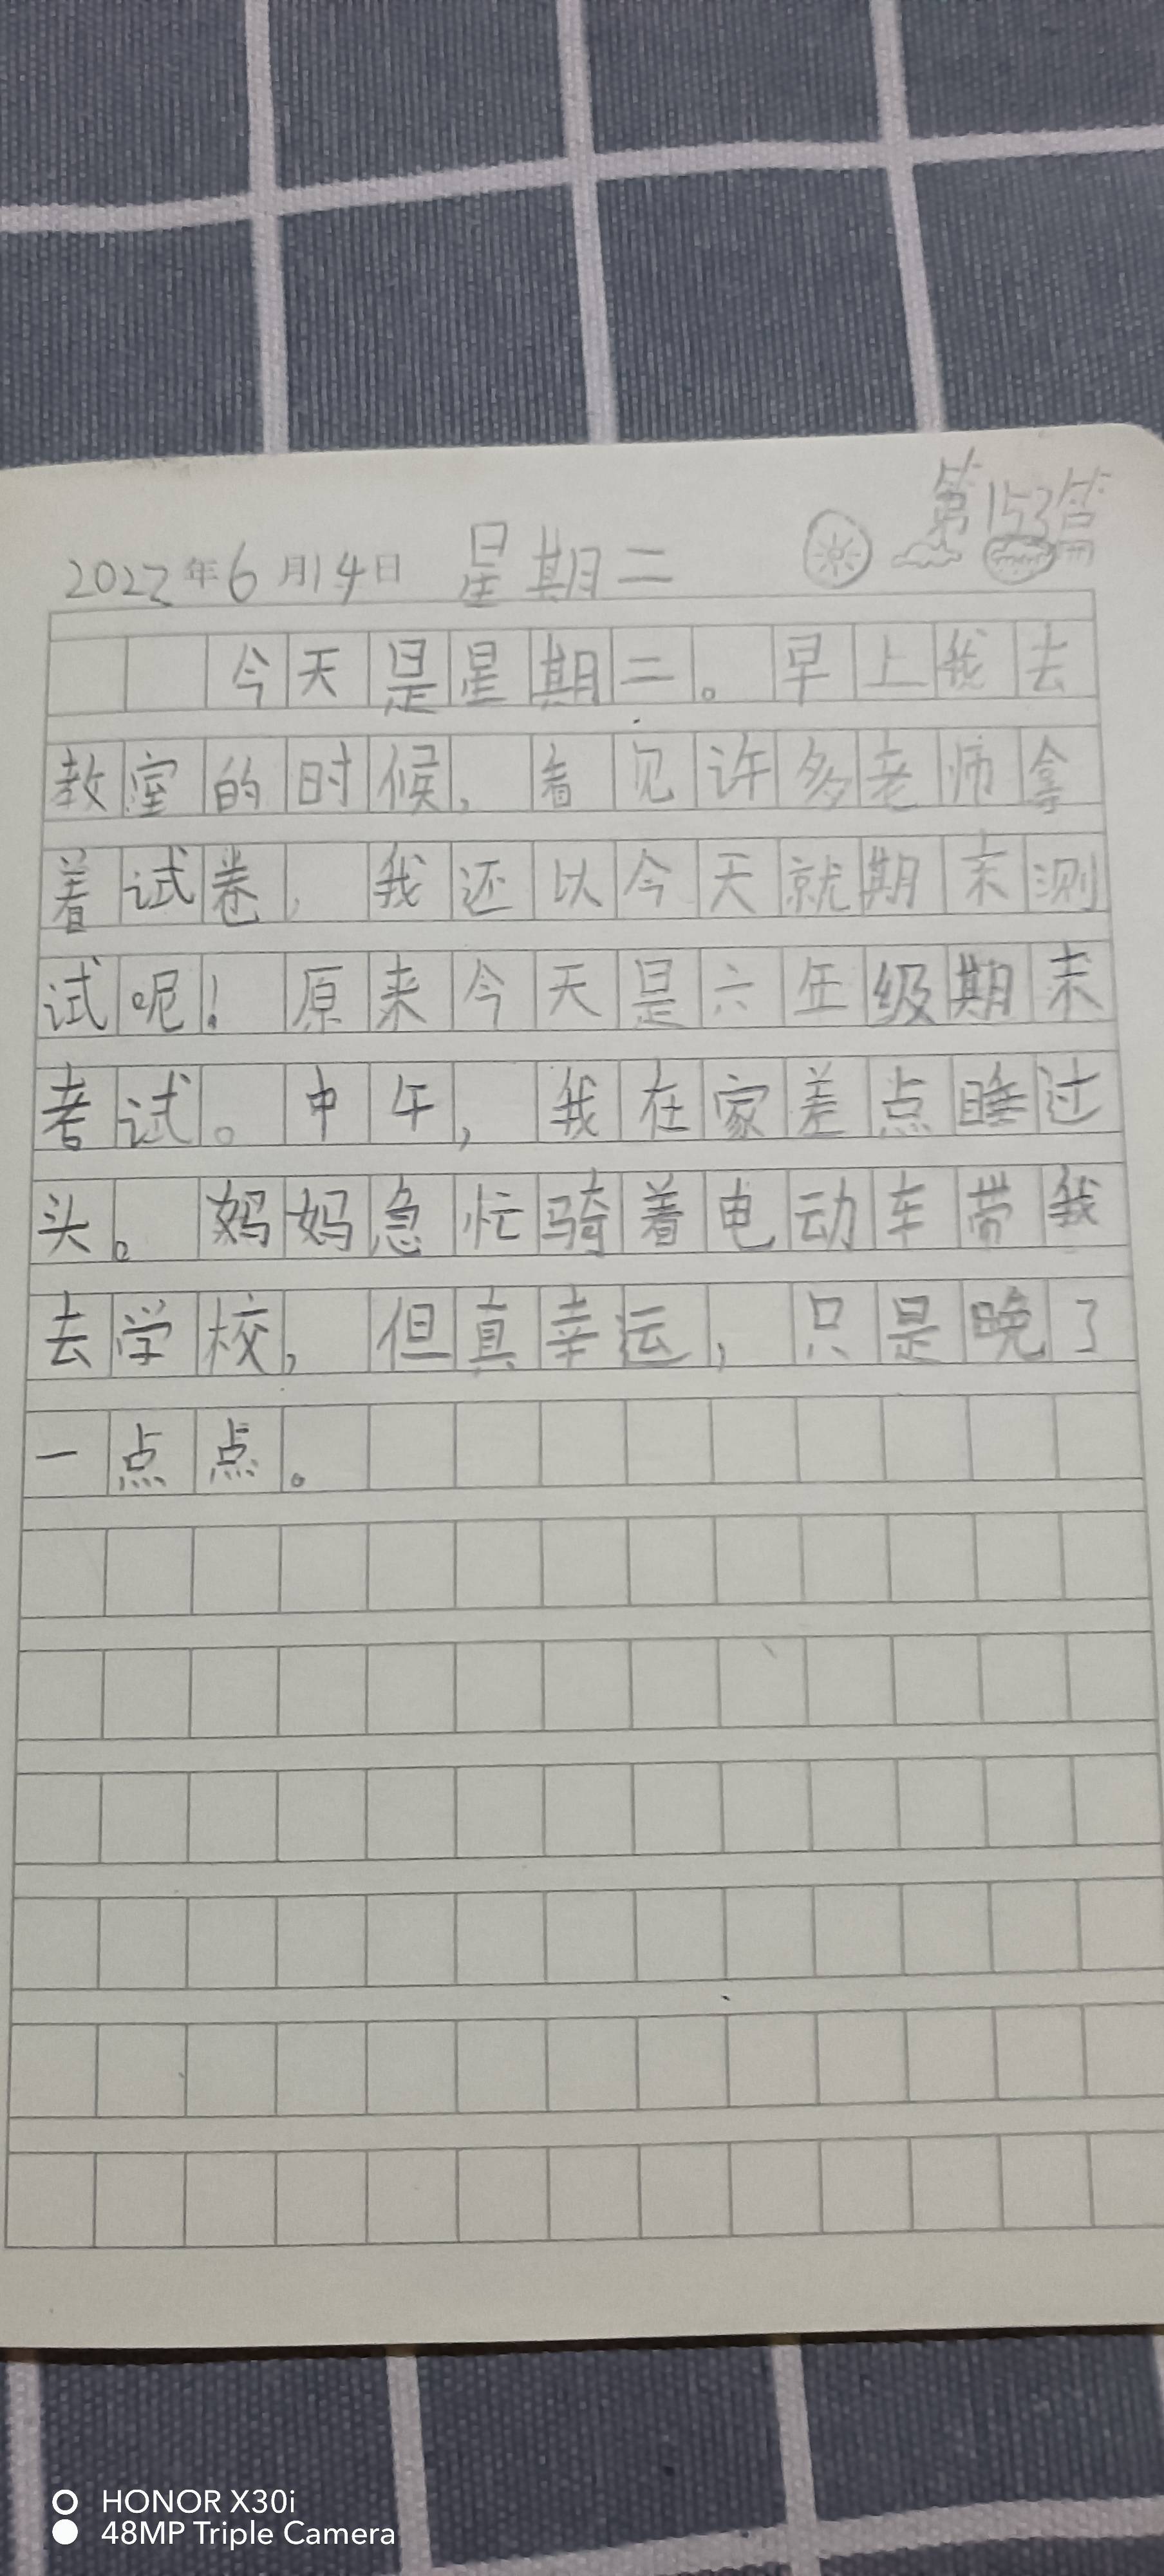 第153篇
2022年6月14日 星期二
今天是星期二。早上我去
教室的时候,看见许多老师拿
着试卷,我还以今天就期末测
试呢!原来今天是六年级期末
考试。中午,我在家差点睡过
头。妈妈急忙骑着电动车带我
去学校,但真幸运,只是晚了
一点点。
HONOR X30i
48MP Triple Camera